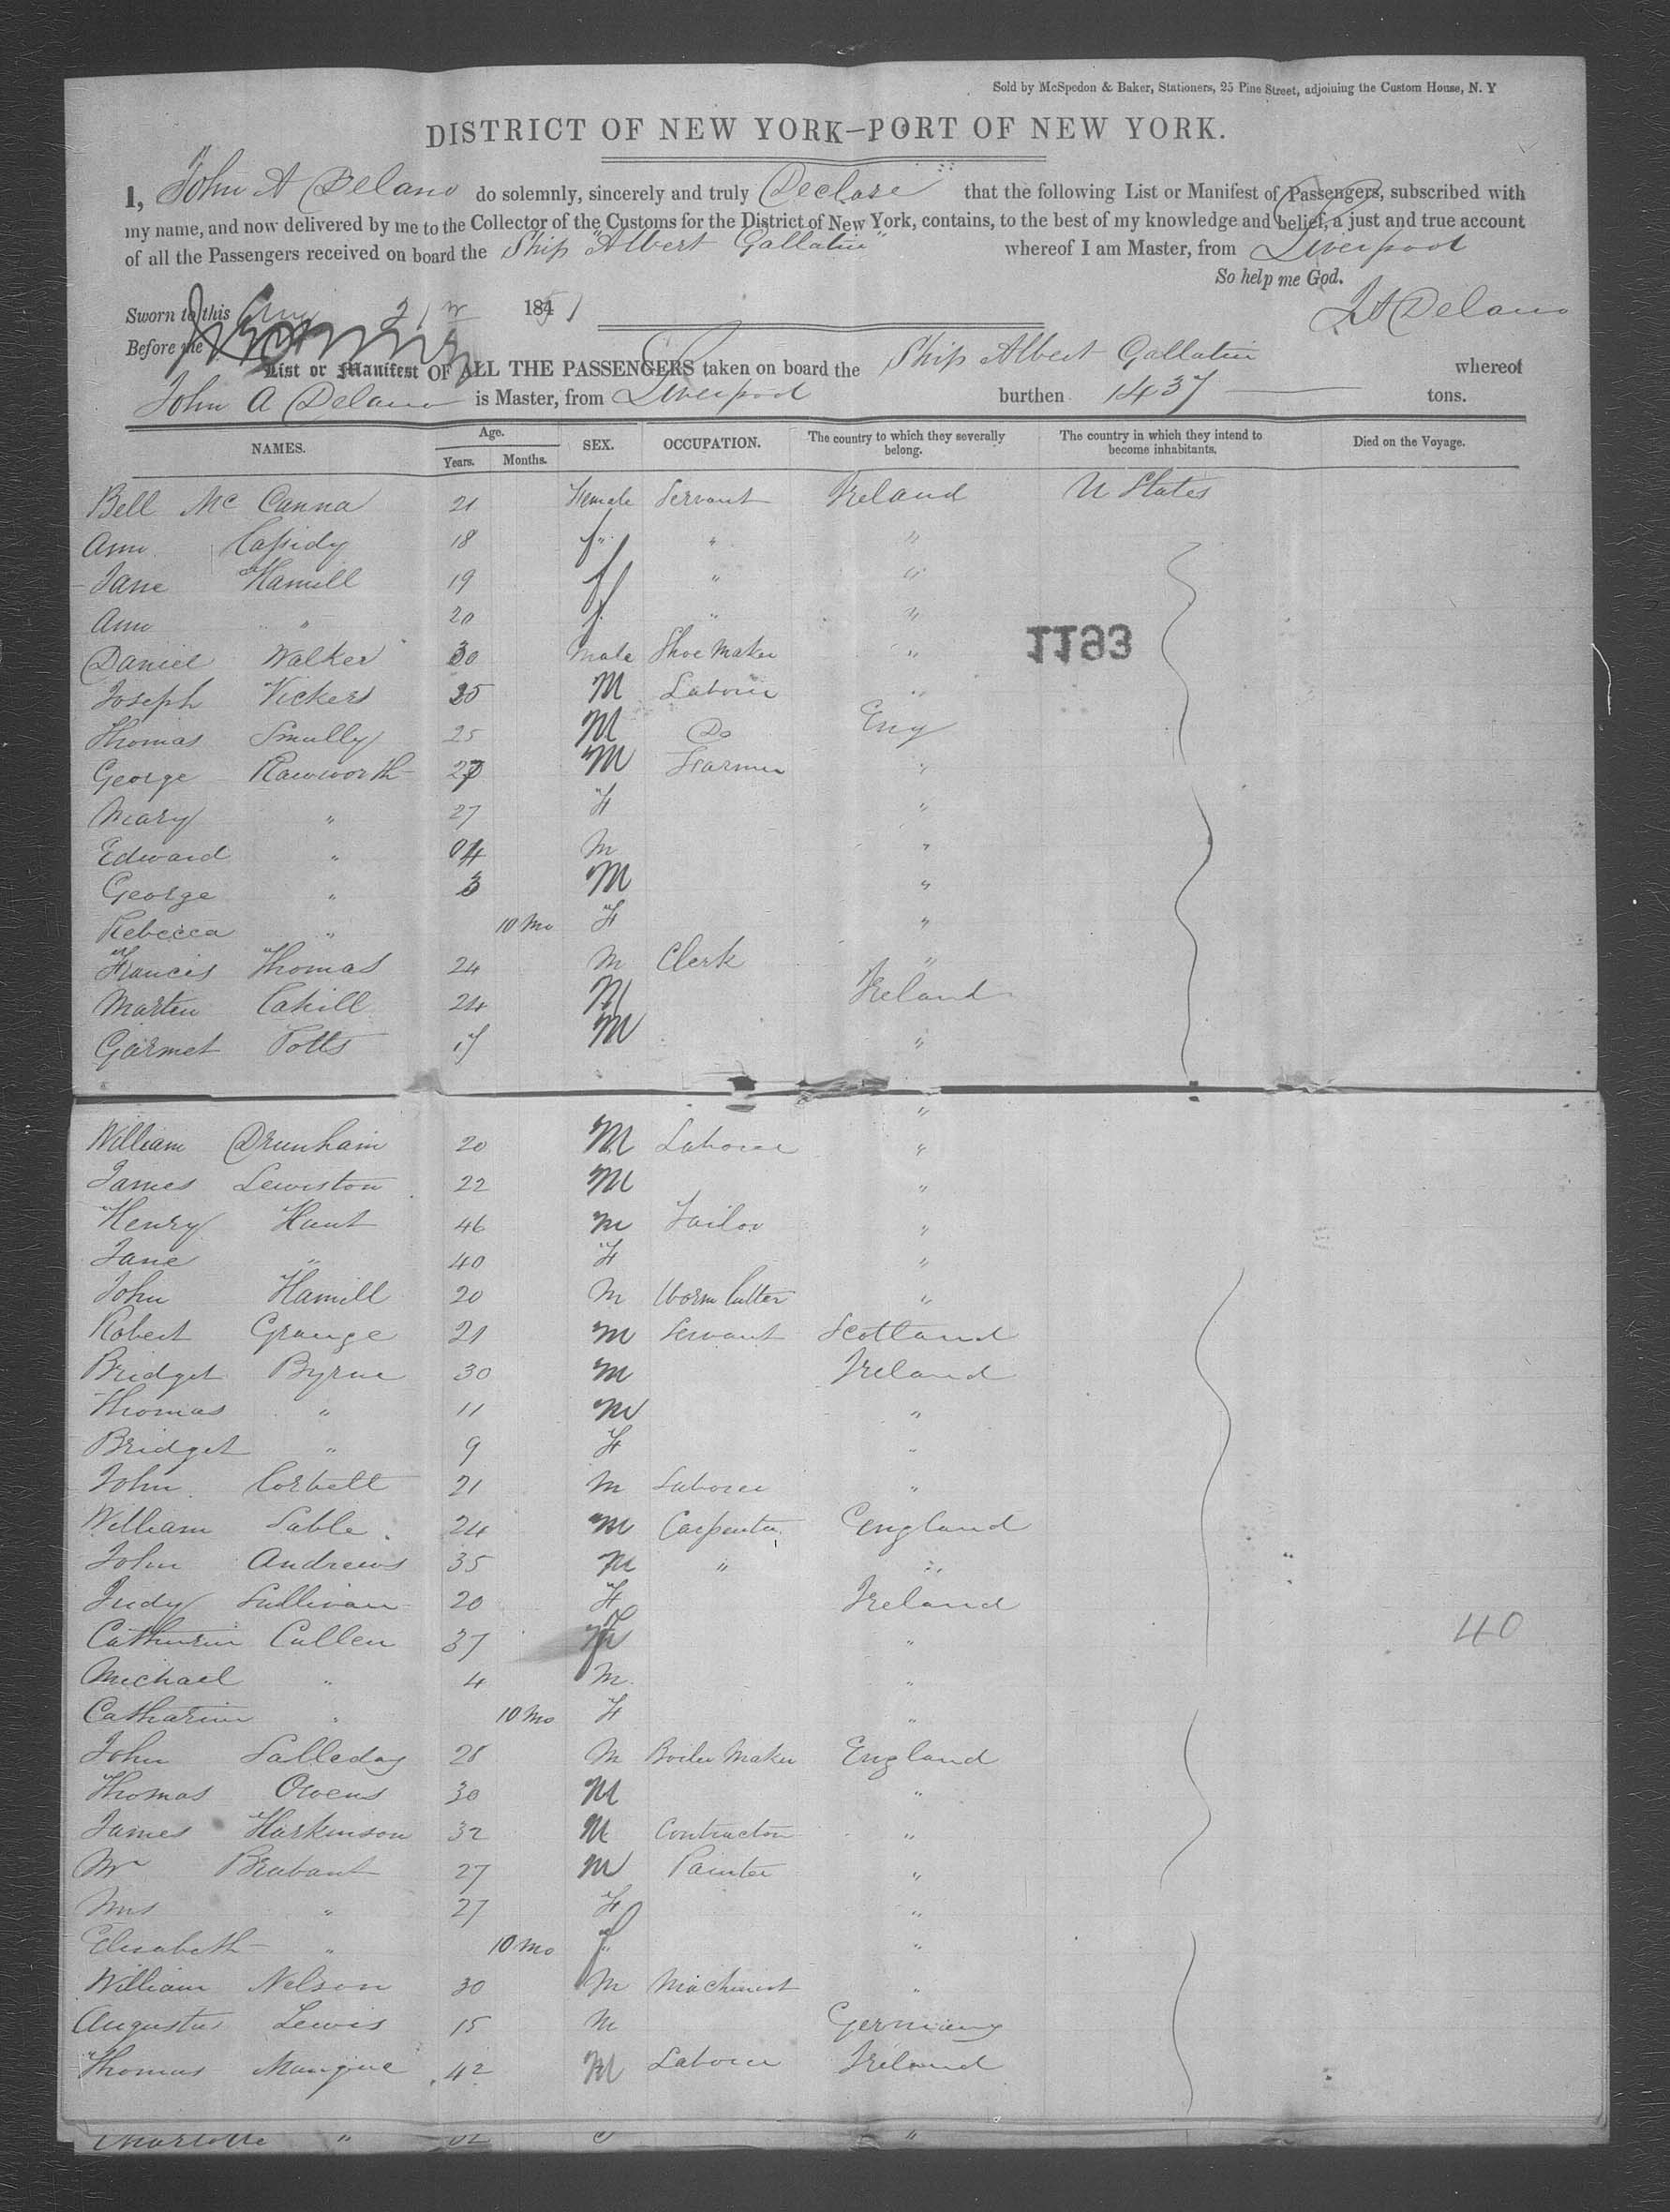 Sold by McSpedon & Baker, Stationers, 25 Pine Street, adjoining the Custom House, N. Y
DISTRICT OF NEW YORK—PORT OF NEW YORK.
I, John A Delano do solemnly, sincerely and truly Declare that the following List or Manifest of Passengers, subscribed with
my name, and now delivered by me to the Collector of the Customs for the District of New York, contains, to the best of my knowledge and belief, a just and true account
of all the Passengers received on board the Ship "Albert Gallatin" whereof I am Master, from Liverpool
So help me God.
Sworn to this 21 1851 J A Delano
Before me
List or Manifest OF ALL THE PASSENGERS taken on board the Ship Albert Gallatin whereof
John A Delano is Master, from Liverpool burthen 1437 tons.
NAMES. Age. Years. Months. SEX. OCCUPATION. The country to which they severally belong. The country in which they intend to become inhabitants. Died on the Voyage.
Bell Mc Canna 21 Female Servant Ireland U States
Ann Cassidy 18 f " " "
Jane Hamill 19 f " "
Ann " 20 f " "
Daniel Walker 30 Male Shoe Maker "
1193
Joseph Vickers 25 M Laborer "
Thomas Smully 25 M Do Eng
George Raworth 27 M Farmer "
Mary " 27 F "
Edward " 04 M "
George " 3 M "
Rebecca " 10 Mo F "
Francis Thomas 24 M Clerk "
Marten Cahill 24 M Ireland
Garmet Potts 17 M "
"
William Drunham 20 M Laborer "
James Lewiston 22 M "
Henry Hant 46 M Tailor "
Jane " 40 F "
John Hamill 20 M "
Robert Grange 21 M Servant Scotland
Bridget Byrne 30 M Ireland
Thomas " 11 M "
Bridget " 9 F "
John Corbett 21 M Laborer "
William Sable 24 M Carpenter England
John Andrews 35 M " "
Judy Sullivan 20 F Ireland
Catharin Cullen 37 F "
40
Michael " 4 M "
Catharin " 10 Mo F "
John Salleday 28 M Boiler Maker England
Thomas Owens 30 M "
James Harkinson 32 M Contractor "
Mr Brabant 27 M Painter "
Mrs " 27 F "
Elisabeth " 10 Mo f "
William Nelson 30 M Machinest "
Augustus Lewis 15 M Germany
Thomas Mangine 42 M Laborer Ireland
Charlotte " "